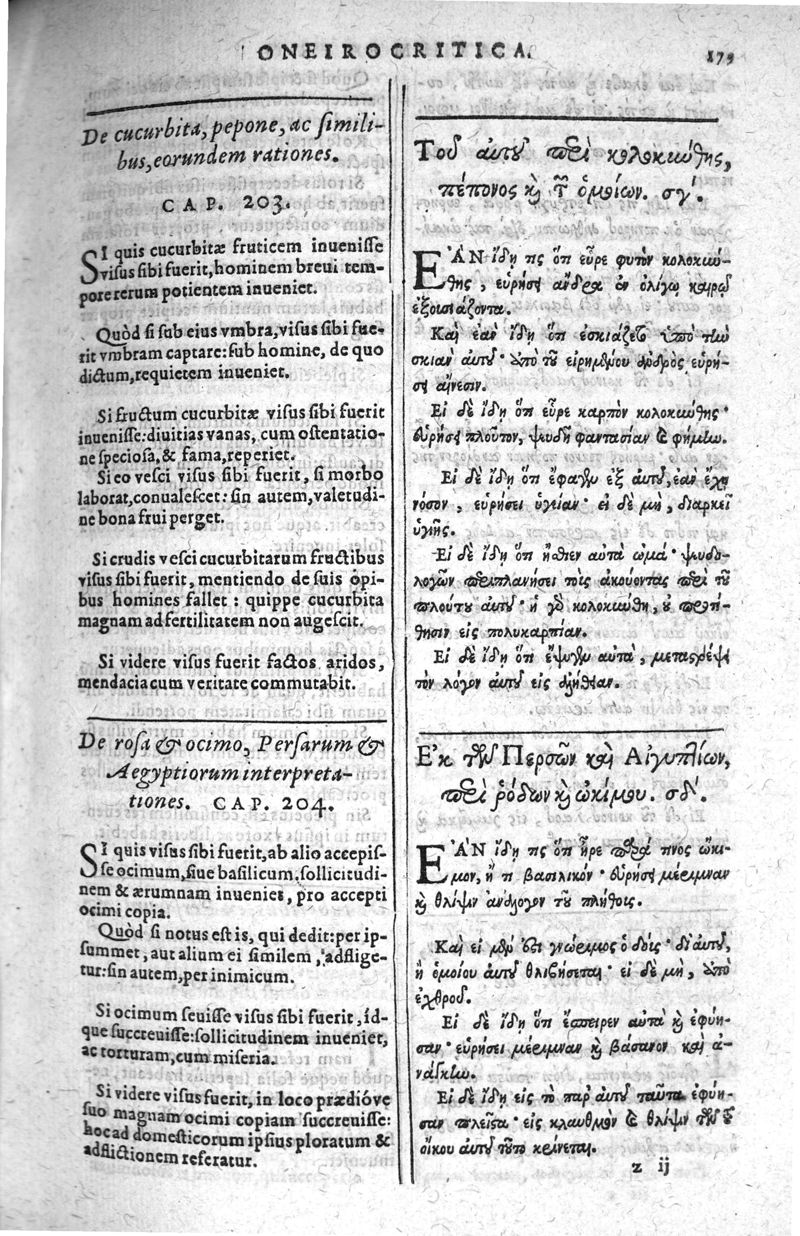 ONEIROCRITICA.
179
De cucurbita, pepone, ac simili-
bus, eorundem rationes.
CAP. 203.
SI quis cucurbitæ fruticem inuenisse
visus sibi fuerit, hominem breui tem-
pore rerum potientem inueniet.
Quòd si sub eius vmbra, visus sibi fue-
rit vmbram captare: sub homine, de quo
dictum, requietem inueniet.
Si fructum cucurbitæ visus sibi fuerit
inuenisse: diuitias vanas, cum ostentatio-
ne speciosa, & fama, reperiet.
Si eo vesci visus sibi fuerit, si morbo
laborat, conualescet: sin autem, valetudi-
ne bona frui perget.
Si crudis vesci cucurbitarum fructibus
visus sibi fuerit, mentiendo de suis opi-
bus homines fallet: quippe cucurbita
magnam ad fertilitatem non augescit.
Si videre visus fuerit factos aridos,
mendacia cum veritate commutabit.
De rosa & ocimo, Persarum &
Aegyptiorum interpreta-
tiones. CAP. 204.
SI quis visus sibi fuerit, ab alio accepis-
se ocimum, siue basilicum: sollicitudi-
nem & ærumnam inueniet, pro accepti
ocimi copia.
Quòd si notus est is, qui dedit: per ip-
summet, aut alium ei similem, adflige-
tur: sin autem, per inimicum.
Si ocimum seuisse visus sibi fuerit, id-
que succreuisse: sollicitudinem inueniet,
ac torturam, cum miseria.
Si videre visus fuerit, in loco prædióve
suo magnam ocimi copiam succreuisse:
hoc ad domesticorum ipsius ploratum &
adflictionem referatur.
Τοῦ αὐτοῦ περὶ κολοκύνθης,
πέπονος καὶ τῶν ὁμοίων. σγʹ.
ΕΑΝ ἴδῃ τις ὅτι εὗρε φυτὸν κολοκύν-
θης, εὑρήσει ἄνδρα ἐν ὀλίγῳ καιρῷ
ἐξουσιάζοντα.
Καὶ ἐὰν ἴδῃ ὅτι ἐσκιάζετο ὑπὸ τὴν
σκιὰν αὐτοῦ· ὑπὸ τοῦ εἰρημένου ἀνδρὸς εὑρή-
σει ἄνεσιν.
Εἰ δὲ ἴδῃ ὅτι εὗρε καρπὸν κολοκύνθης·
εὑρήσει πλοῦτον, ψευδῆ φαντασίαν καὶ φήμην.
Εἰ δὲ ἴδῃ ὅτι ἔφαγεν ἐξ αὐτοῦ, ἐὰν ἔχῃ
νόσον, εὑρήσει ὑγείαν· εἰ δὲ μὴ, διαρκεῖ
ὑγιής.
Εἰ δὲ ἴδῃ ὅτι ἤσθιεν αὐτὰ ὠμά· ψευδο-
λογῶν περιπλανήσει τοὺς ἀκούοντας περὶ τοῦ
πλούτου αὐτοῦ· ἡ γὰρ κολοκύνθη, οὐ
εἰς πολυκαρπίαν.
Εἰ δὲ ἴδῃ ὅτι ἕψησεν αὐτὰ, μεταστρέψει
τὸν λόγον αὐτοῦ εἰς ἀλήθειαν.
Ἐκ τῶν Περσῶν καὶ Αἰγυπτίων,
περὶ ῥόδων καὶ ὠκίμου. σδʹ.
ΕΑΝ ἴδῃ τις ὅτι ἦρε παρά τινος ὤκι-
μον, ἤ τι βασιλικόν· εὑρήσει μέριμναν
καὶ θλίψιν ἀνάλογον τοῦ πλήθους.
Καὶ εἰ μέν ἐστι γνώριμος ὁ δούς· δι' αὐτοῦ,
ἢ ὁμοίου αὐτοῦ θλιβήσεται· εἰ δὲ μὴ, ὑπὸ
ἐχθροῦ.
Εἰ δὲ ἴδῃ ὅτι ἔσπειρεν αὐτὰ καὶ ἐφύη-
σαν· εὑρήσει μέριμναν καὶ βάσανον καὶ ἀ-
νάγκην.
Εἰ δὲ ἴδῃ εἰς τὸ παρ' αὐτοῦ ταῦτα ἐφύη-
σαν πλεῖστα· εἰς κλαυθμὸν καὶ θλῖψιν τῶν τοῦ
οἴκου αὐτοῦ τοῦτο κρίνεται.
z ij